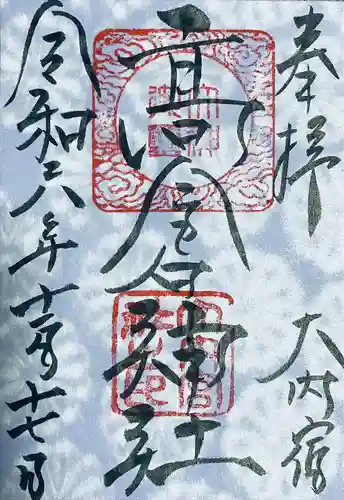 奉拝
大内宿
高倉神社
令和六年十一月十七日